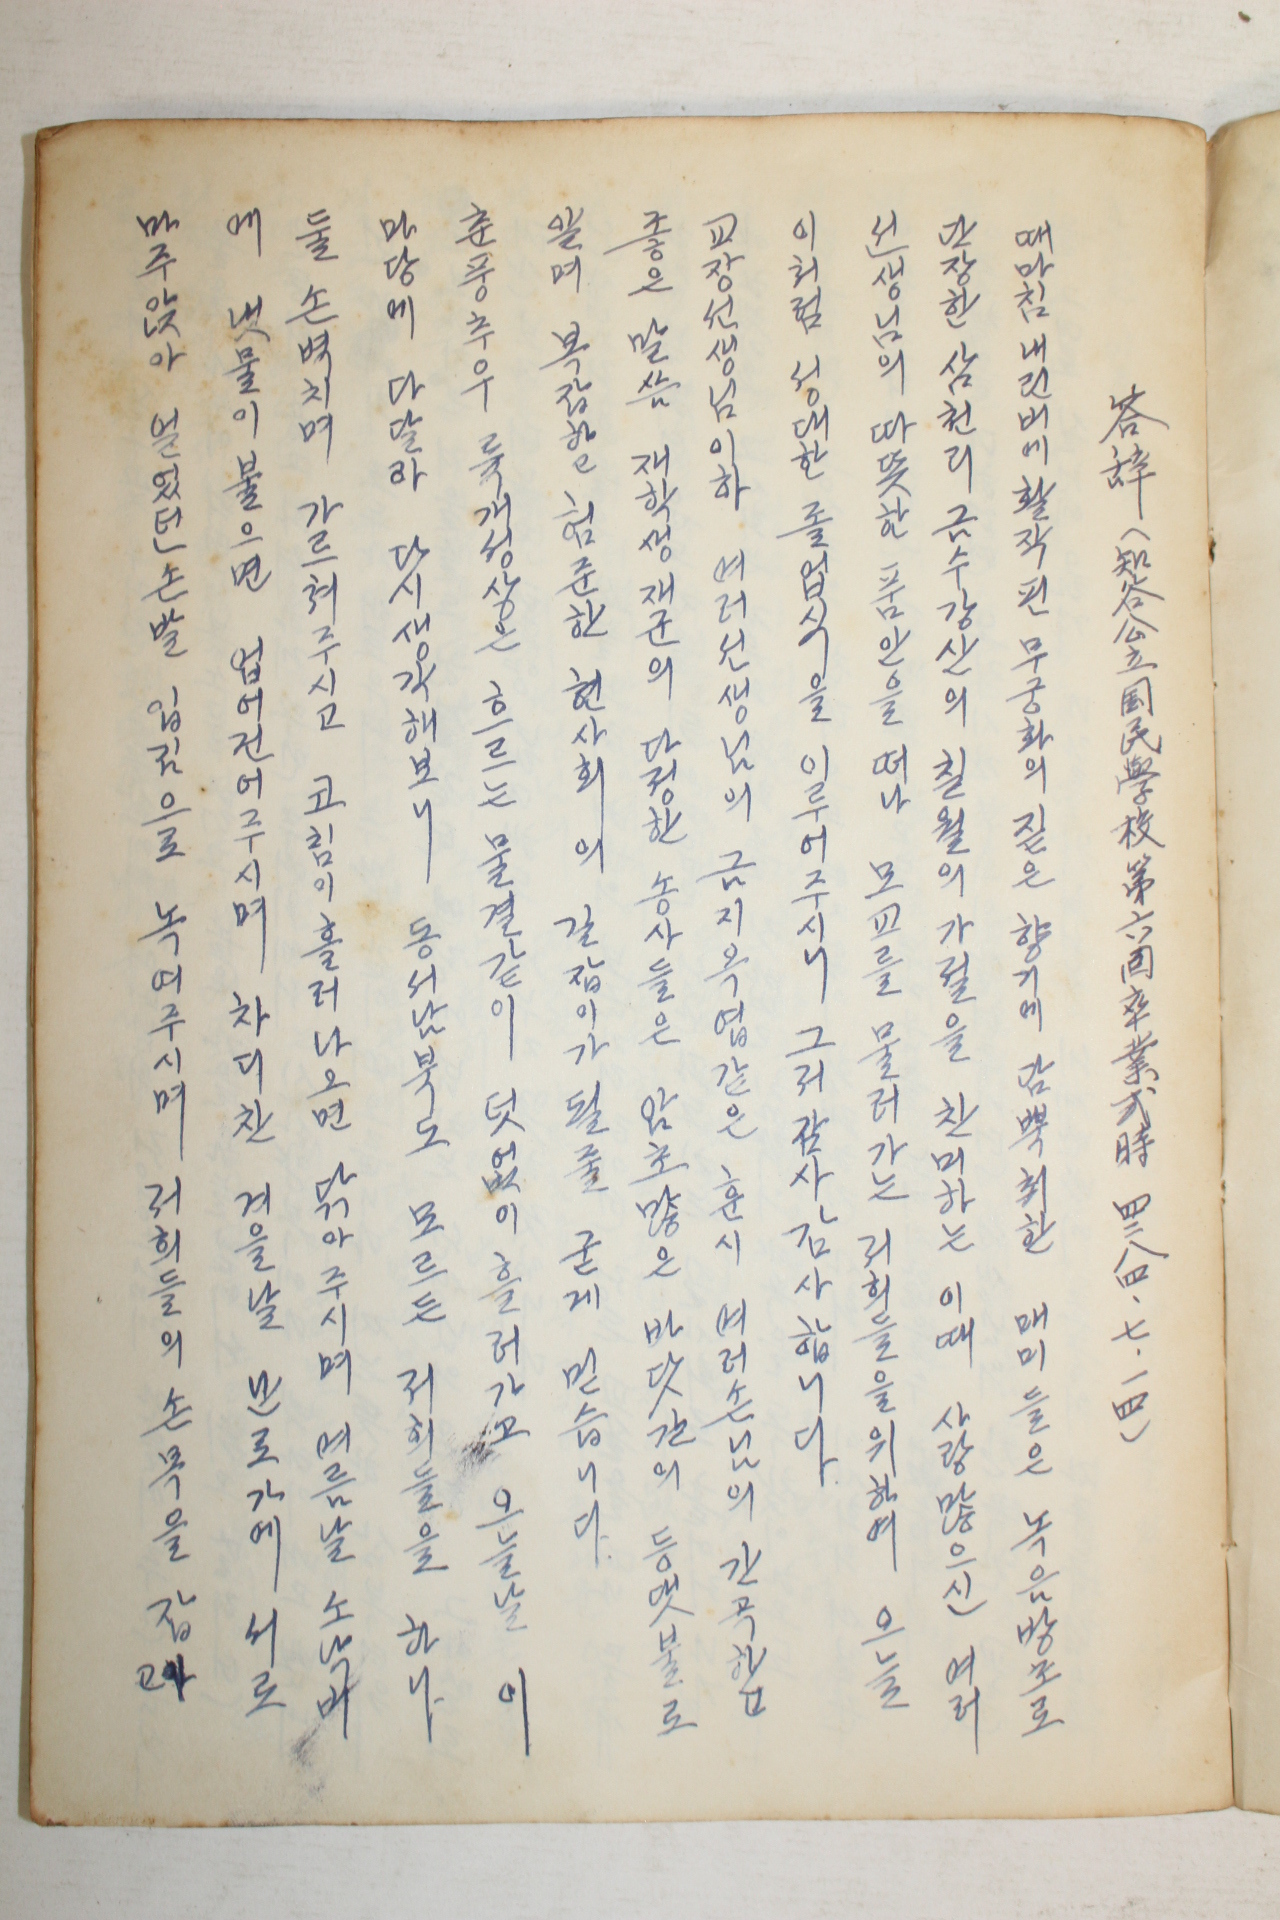 答辞 (知谷公立国民學校 第六回卒業式時 四二八四、七、一四)
때마침 내린비에 활작 핀 무궁화의 짙은 향기에 담뿍취한 매미들은 녹음방초로
단장한 삼천리 금수강산의 칠월의 가절을 찬미하는 이때 사랑많으신 여러
선생님의 따뜻한 품안을 떠나 모교를 물러가는 저희들을위하여 오늘
이처럼 성대한 졸업식을 이루어주시니 그저 감사 감사합니다.
교장선생님이하 여러선생님의 금지옥엽같은 훈시 여러손님의 간곡한
좋은 말씀 재학생 제군의 다정한 송사들은 암초많은 바닷간의 등댓불로
알며 복잡한 험준한 현사회의 길잡이가 될줄 굳게 믿습니다.
춘풍추우 륙개성상은 흐르는 물결같이 덧없이 흘러가고 오늘날 이
마당에 다달라 다시생각해보니 동서남북도 모르든 저희들을 하나
둘 손벽치며 가르쳐주시고 코침이흘러나오면 닦아주시며 여름날 소낙비
에 냇물이불으면 업어건어주시며 차디찬 겨을날 난로가에 서로
마주앉아 얼었던 손발 입김으로 녹여주시며 저희들의 손목을 잡